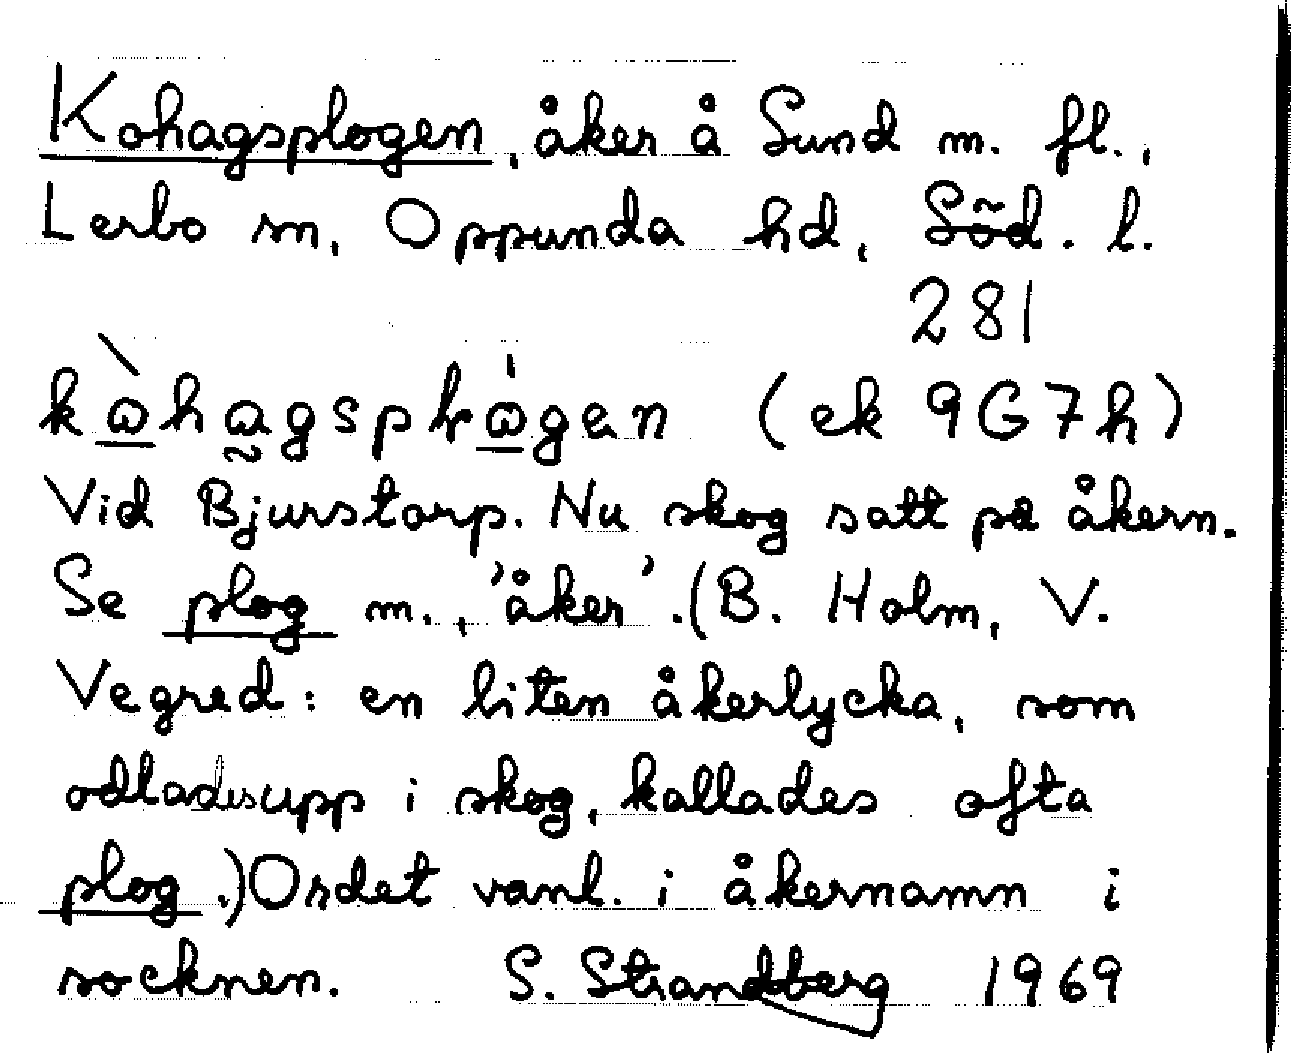 Kohagsplogen, åker å Sund m. fl.,
Lerbo sn, Oppunda hd, Söd. l.
281
(ek 9G7h)
Vid Bjurstorp. Nu skog satt på åkern.
Se plog m., 'åker'. (B. Holm, V.
Vegred: en liten åkerlycka, som
odlades upp i skog, kallades ofta
plog.) Ordet vanl. i åkernamn i
socknen. S. Strandberg 1969